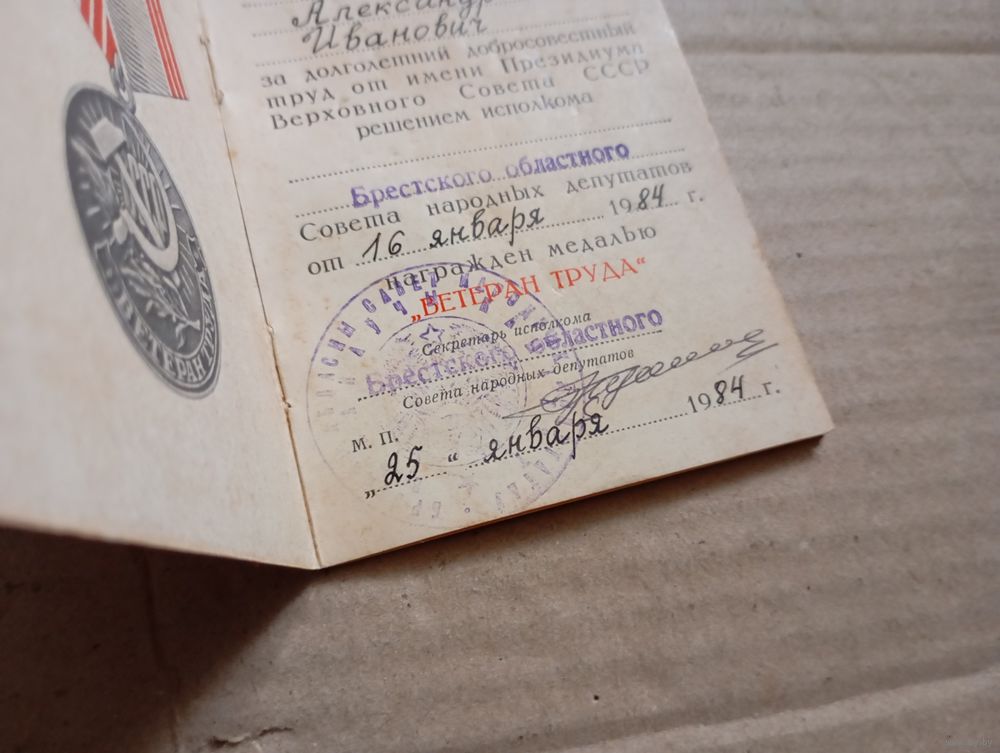 Александр
Иванович
за долголетний добросовестный
труд от имени Президиума
Верховного Совета СССР
решением исполкома
Брестского областного
Совета народных депутатов
от 16 января 1984 г.
награжден медалью
„ВЕТЕРАН ТРУДА“
Секретарь исполкома
Брестского областного
Совета народных депутатов
М. П.
„25“ января 1984 г.
СССР
ВЕТЕРАН ТРУДА